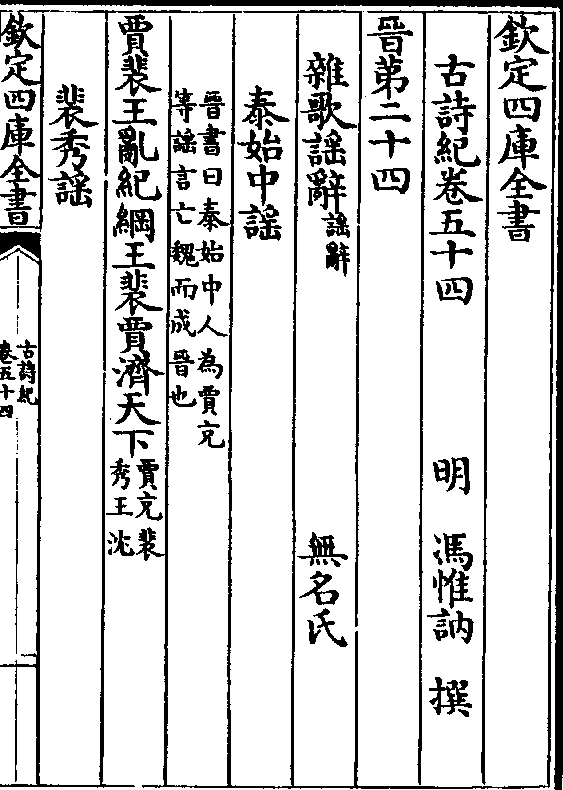 欽定四庫全書
古詩紀卷五十四
明 馮惟訥 撰
晉第二十四
雜歌謡辭謡辭 無名氏
泰始中謡
晉書曰泰始中人為賈充
等謡言亡魏而成晉也
賈裴王亂紀綱王裴賈濟天下賈充裴
秀王沈
裴秀謡
欽定四庫全書
古詩紀
卷五十四
一